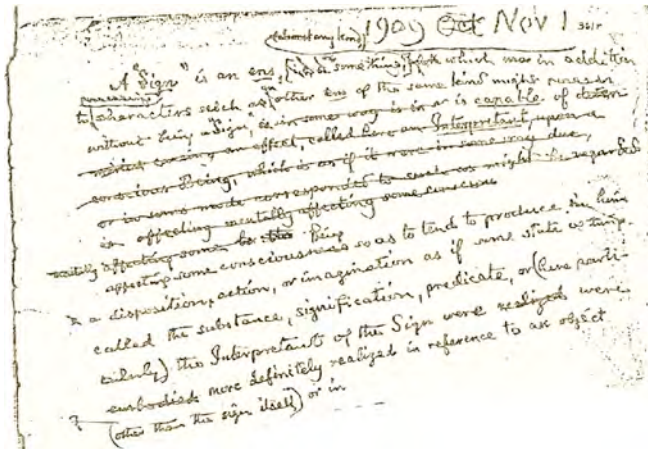 1909 Oct Nov 1
(about any kind)
A "Sign" is an ens, something, which in addition
possessing
to characters such as other ens of the same kind might possess
without being a sign, is in some way is in or is capable of
causing an effect, called here an Interpretant upon a
conscious Being, which is as if it were in some way due,
or in some mode corresponded to such as might be regarded
in affecting mentally affecting some conscious
mentally affecting some Being
affecting some consciousness so as to tend to produce in him
a disposition, action, or imagination as if some state or thing
called the substance, signification, predicate, or (here parti-
cularly) the Interpretant of the Sign were realized were
embodied more definitely realized in reference to an object
(other than the sign itself) or in